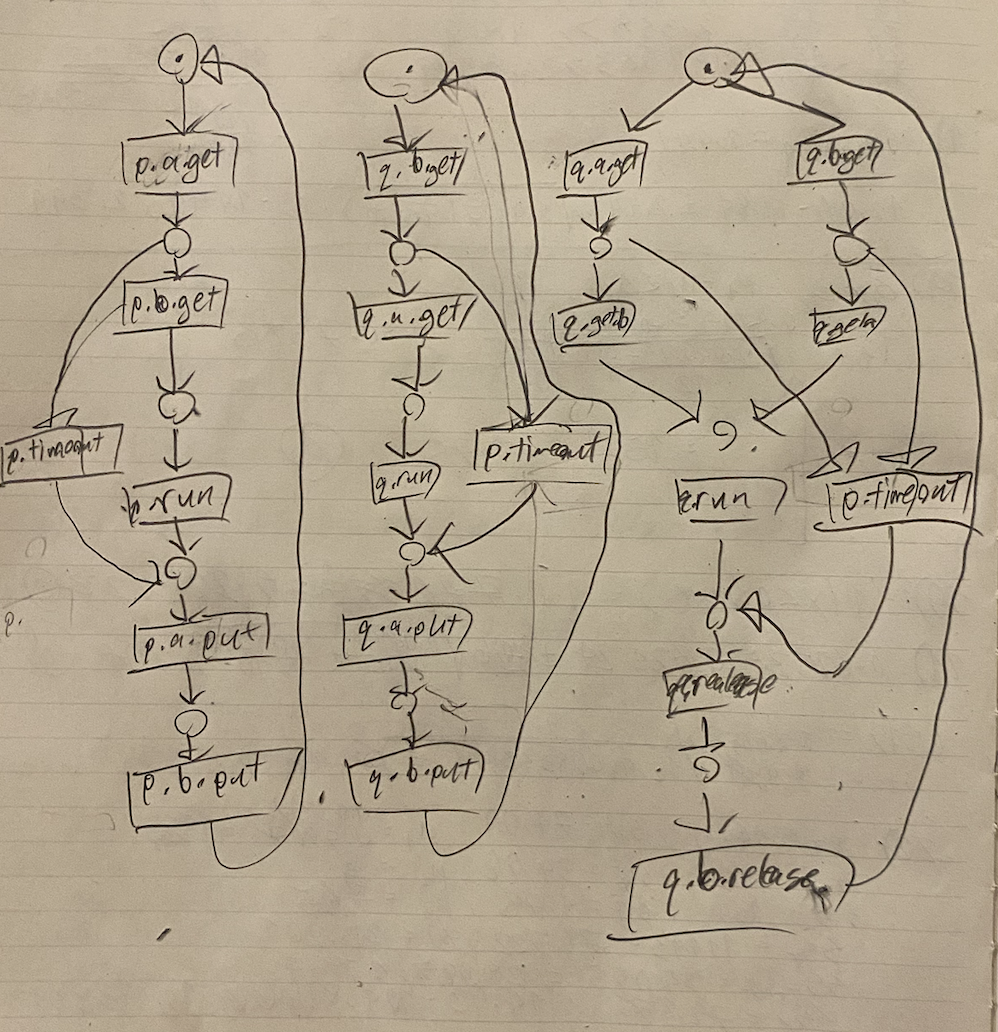 p.a.get
p.b.get
p.timeout
p.run
p.a.put
p.b.put
q.b.get
q.a.get
p.timeout
q.run
q.a.put
q.b.put
q.a.get
q.b.get
q.getb
q.geta
q.run
p.timeout
q.b.release
p.